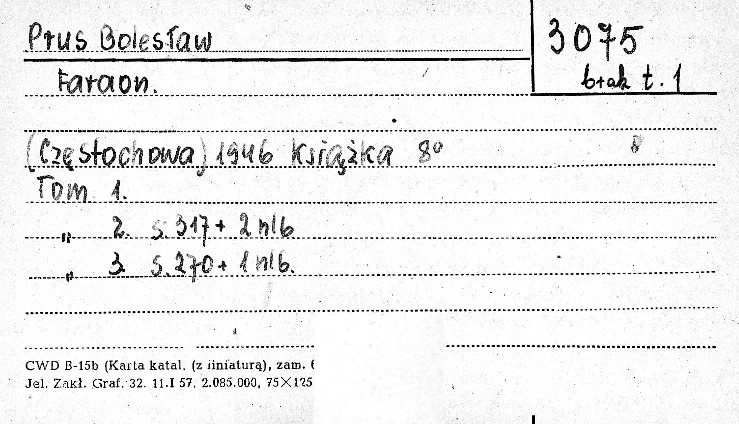 Prus Bolesław
3075
brak t. 1
Faraon.
(Częstochowa) 1946 Książka 8°
Tom 1.
„ 2. s. 317 + 2 nlb
„ 3. s. 270 + 1 nlb.
CWD B-15b (Karta katal. (z liniaturą), zam. 6
Jel. Zakł. Graf. 32. 11.I 57. 2.085.000, 75×125